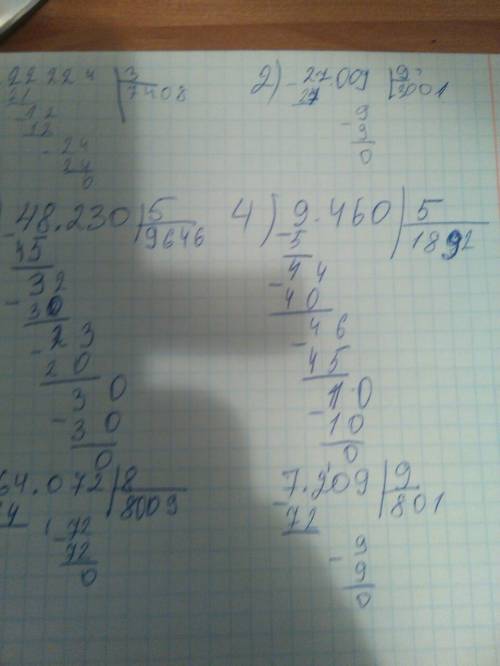 22 22 4 | 3
21 7408
- 12
12
- 24
24
0
2) - 27.009 | 9
27 3001
- 9
9
0
) 48.230 | 5
- 45 9646
32
- 30
- 23
20
30
- 30
0
4) 9.460 | 5
- 5 1892
44
- 40
- 46
45
10
- 10
0
64.072 | 8
8009
- 72
72
0
7.209 | 9
- 72 801
- 9
9
0